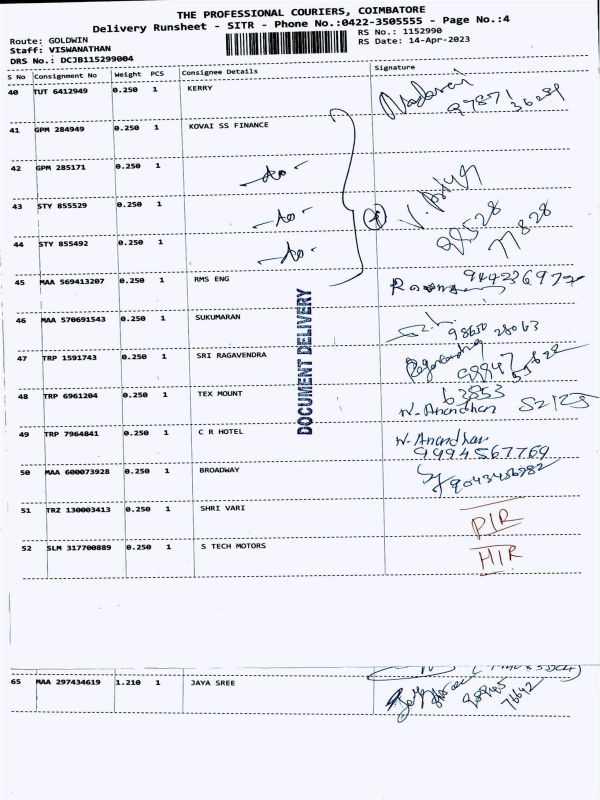 THE PROFESSIONAL COURIERS, COIMBATORE
Delivery Runsheet - SITR - Phone No.:0422-3505555 - Page No.:4
Route: GOLDWIN
Staff: VISWANATHAN
DRS No.: DCJB115299004
RS No.: 1152990
RS Date: 14-Apr-2023
S No Consignment No Weight PCS Consignee Details Signature
40 TUT 6412949 0.250 1 KERRY
41 GPM 284949 0.250 1 KOVAI SS FINANCE
42 GPM 285171 0.250 1 -do-
43 STY 855529 0.250 1 -do-
44 STY 855492 0.250 1 -do-
45 MAA 569413207 0.250 1 RMS ENG
46 MAA 570691543 0.250 1 SUKUMARAN
47 TRP 1591743 0.250 1 SRI RAGAVENDRA
48 TRP 6961204 0.250 1 TEX MOUNT 63853 N. Anandhan 52125
49 TRP 7964841 0.250 1 C R HOTEL N. Anandhan 9994567769
50 MAA 600073928 0.250 1 BROADWAY
51 TRZ 130003413 0.250 1 SHRI VARI P/R
52 SLM 317700889 0.250 1 S TECH MOTORS H/R
DOCUMENT DELIVERY
65 MAA 297434619 1.210 1 JAYA SREE